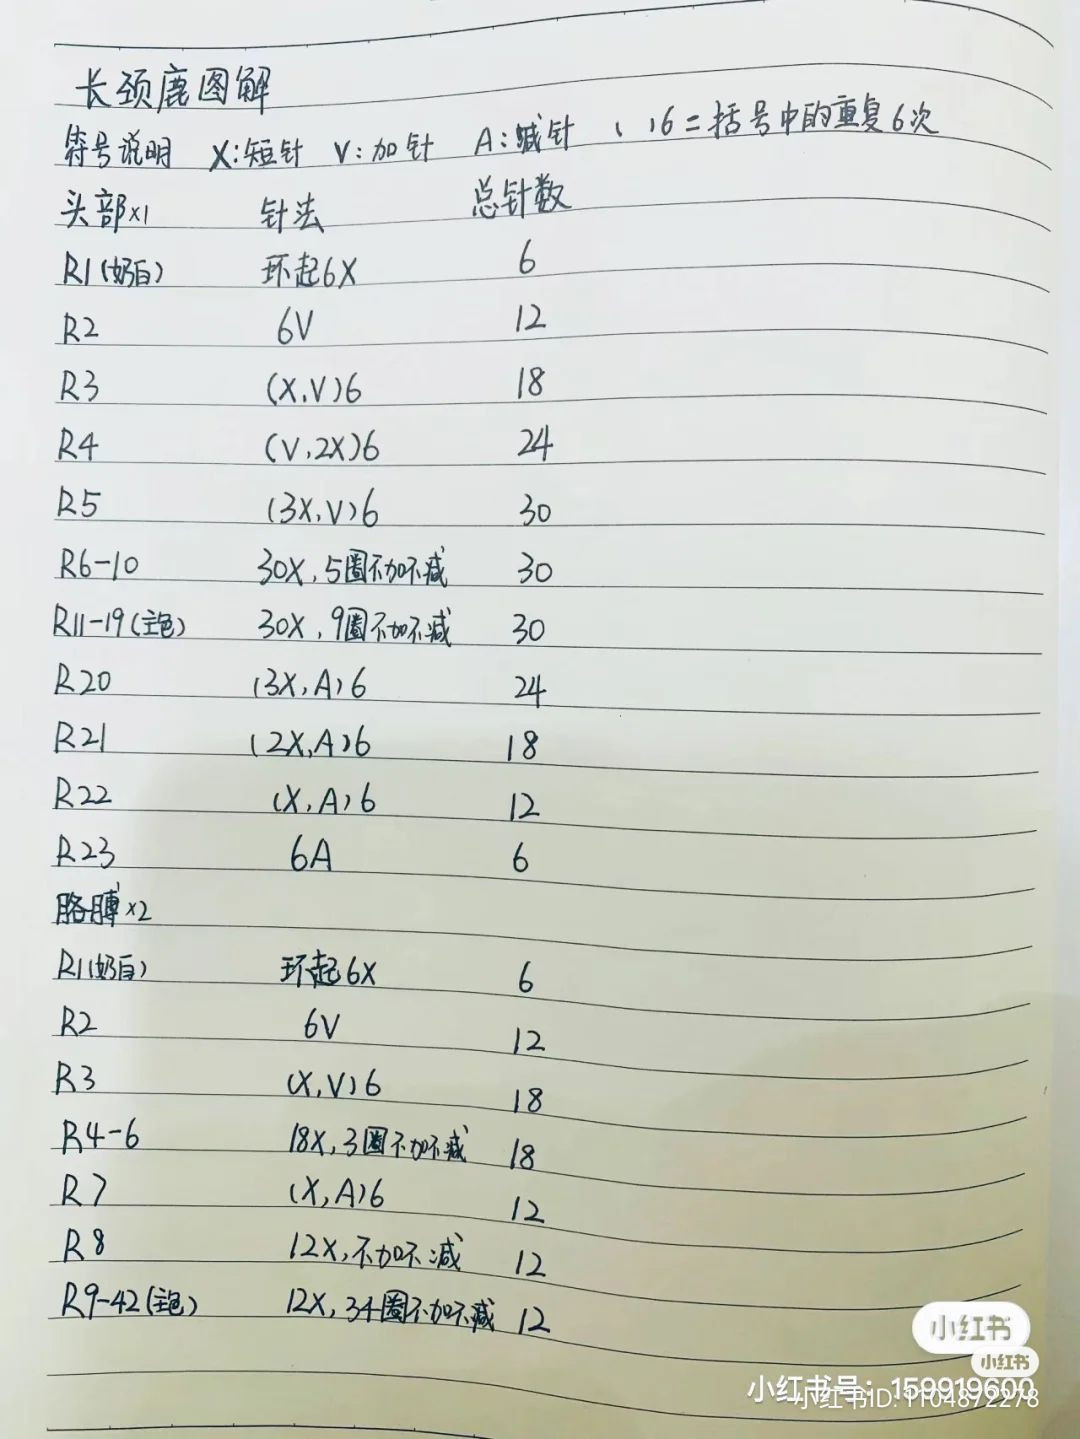 长颈鹿图解
符号说明 X:短针 V:加针 A:减针 ( )6=括号中的重复6次
头部×1 针法 总针数
R1(奶白) 环起6X 6
R2 6V 12
R3 (X,V)6 18
R4 (V,2X)6 24
R5 (3X,V)6 30
R6-10 30X,5圈不加不减 30
R11-19(主色) 30X,9圈不加不减 30
R20 (3X,A)6 24
R21 (2X,A)6 18
R22 (X,A)6 12
R23 6A 6
胳膊×2
R1(奶白) 环起6X 6
R2 6V 12
R3 (X,V)6 18
R4-6 18X,3圈不加不减 18
R7 (X,A)6 12
R8 12X,不加不减 12
R9-42(主色) 12X,34圈不加不减 12
小红书
小红书
小红书号:159919600
小红书ID:1104872278